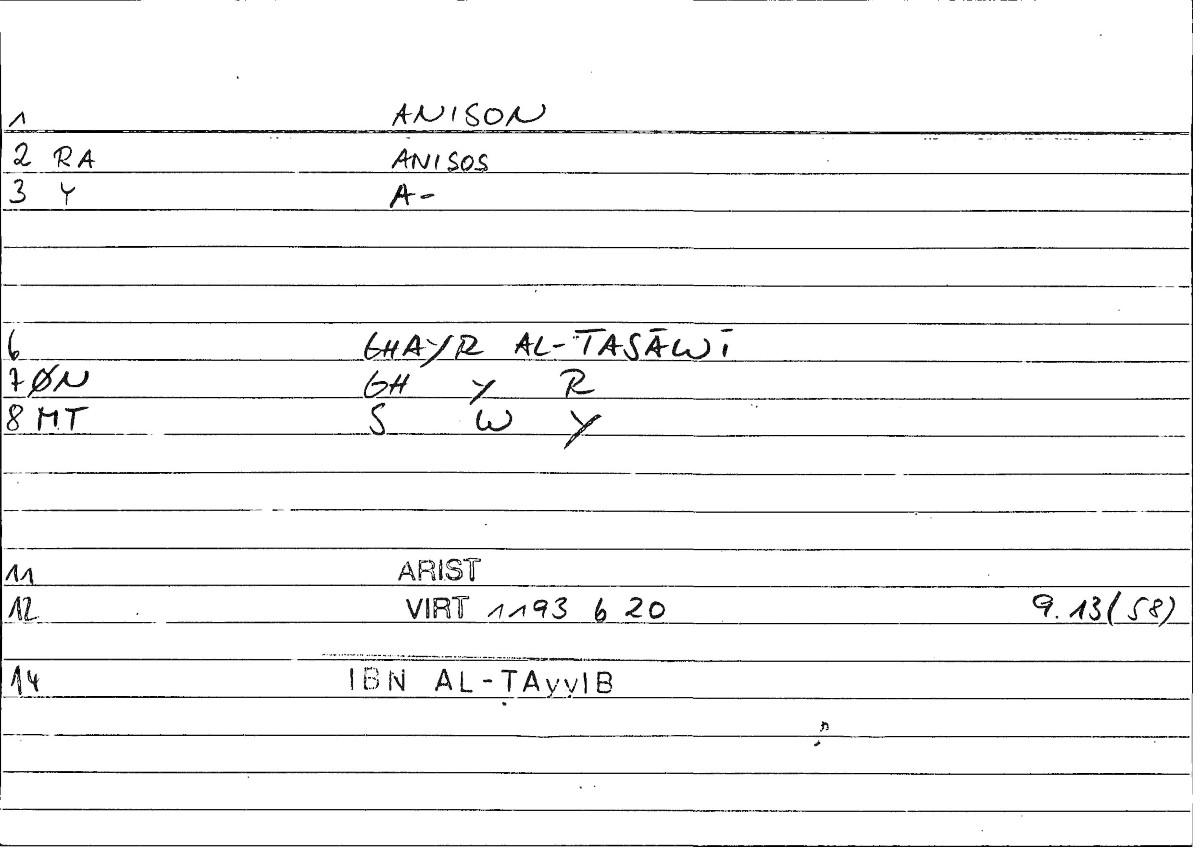 1 ANISON
2 RA ANISOS
3 Y A-
6 GHAYR AL-TASĀWĪ
7 ØN GH Y R
8 MT S W Y
11 ARIST
12 VIRT 1193 b 20 9.13(58)
14 IBN AL-ṬAyyIB